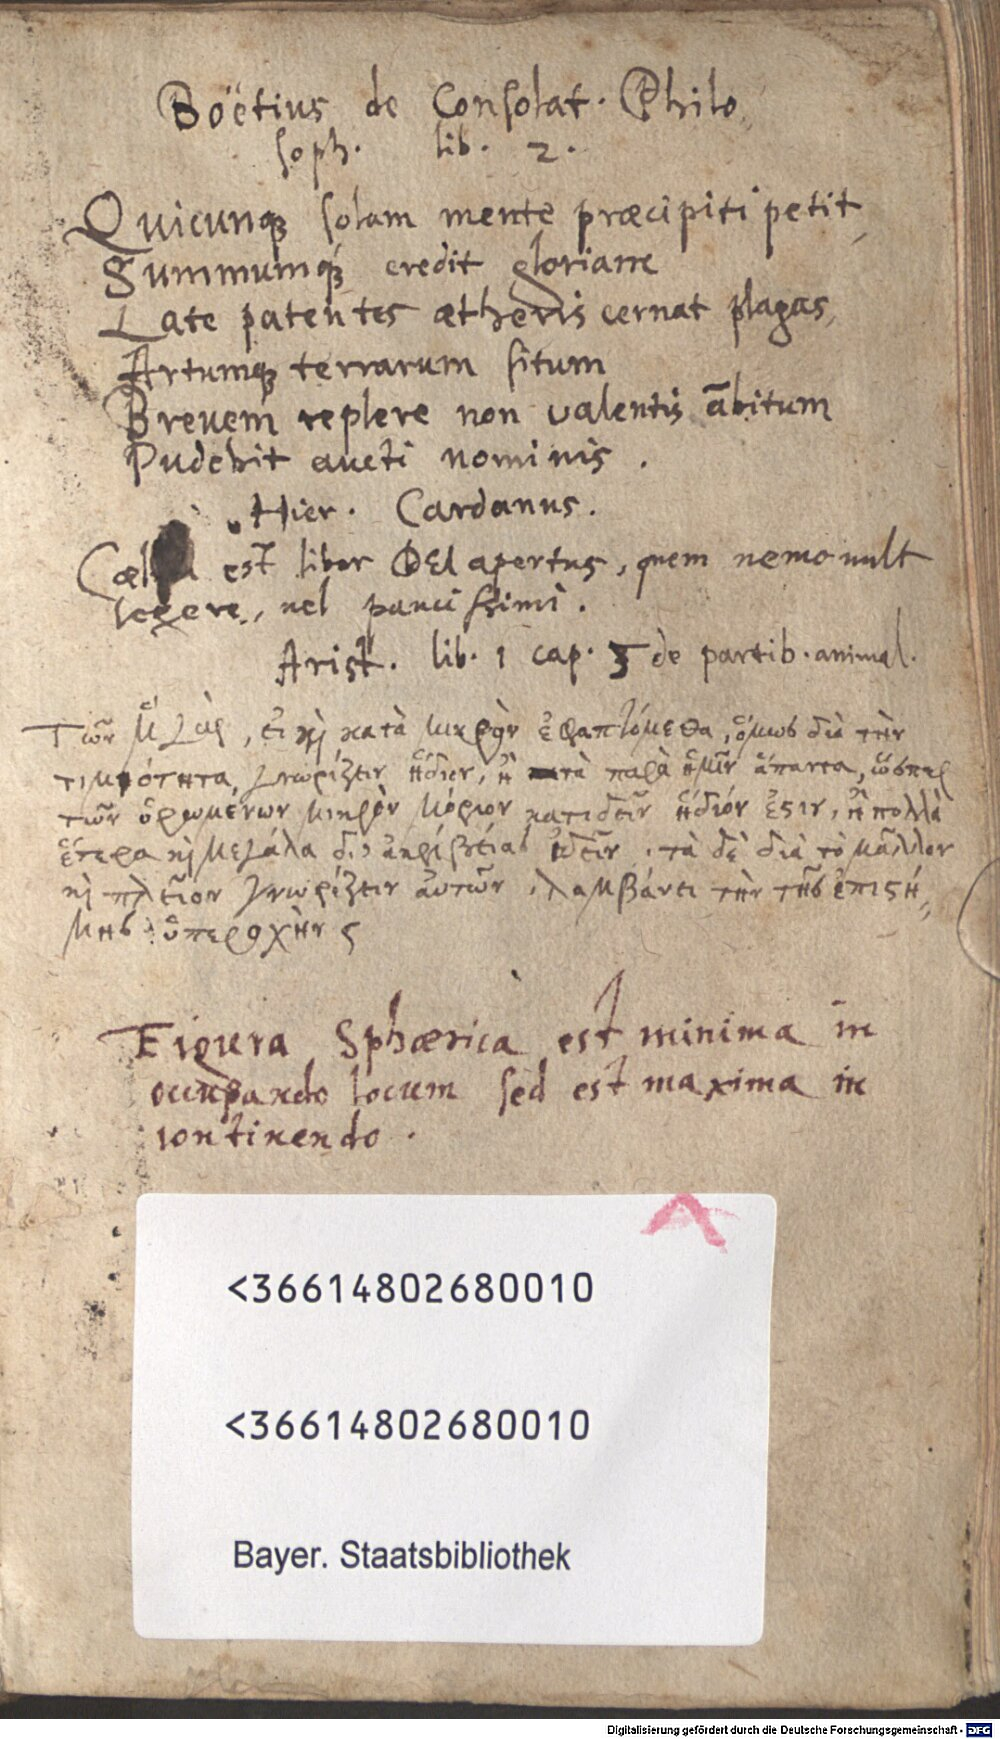 Boëtius de Consolat. Philo
soph. lib. 2.
Quicunq; solam mente præcipiti petit
Summumq; credit gloriam
Late patentes ætheris cernat plagas,
Artumq; terrarum situm
Brevem replere non valentis ābitum
Pudebit aucti nominis.
Hier. Cardanus.
est liber DEI apertus, quem nemo vult
legere, vel paucissimi.
Arist. lib. 1 cap. 5 de partib. animal.
Τῶν , εἰ κὶ κατὰ μικρὸν ἐφαπτόμεθα, ὅμως διὰ τὴν
τιμιότητα γνωρίζειν ἥδιον, ἢ τὰ παρὰ ἡμῖν ἅπαντα, ὥσπερ
τῶν ὁρωμένων μικρὸν μόριον κατιδεῖν ἥδιόν ἐστιν, ἢ πολλὰ
ἕτερα κὶ μεγάλα δι' ἀκριβείας ἰδεῖν. τὰ δὲ διὰ τὸ μᾶλλον
κὶ πλεῖον γνωρίζειν αὐτῶν, λαμβάνει τὴν τῆς ἐπιστή
μης ὑπεροχὴν
Figura Sphærica est minima in
occupando locum sed est maxima in
continendo.
A
<36614802680010
<36614802680010
Bayer. Staatsbibliothek
Digitalisierung gefördert durch die Deutsche Forschungsgemeinschaft - DFG